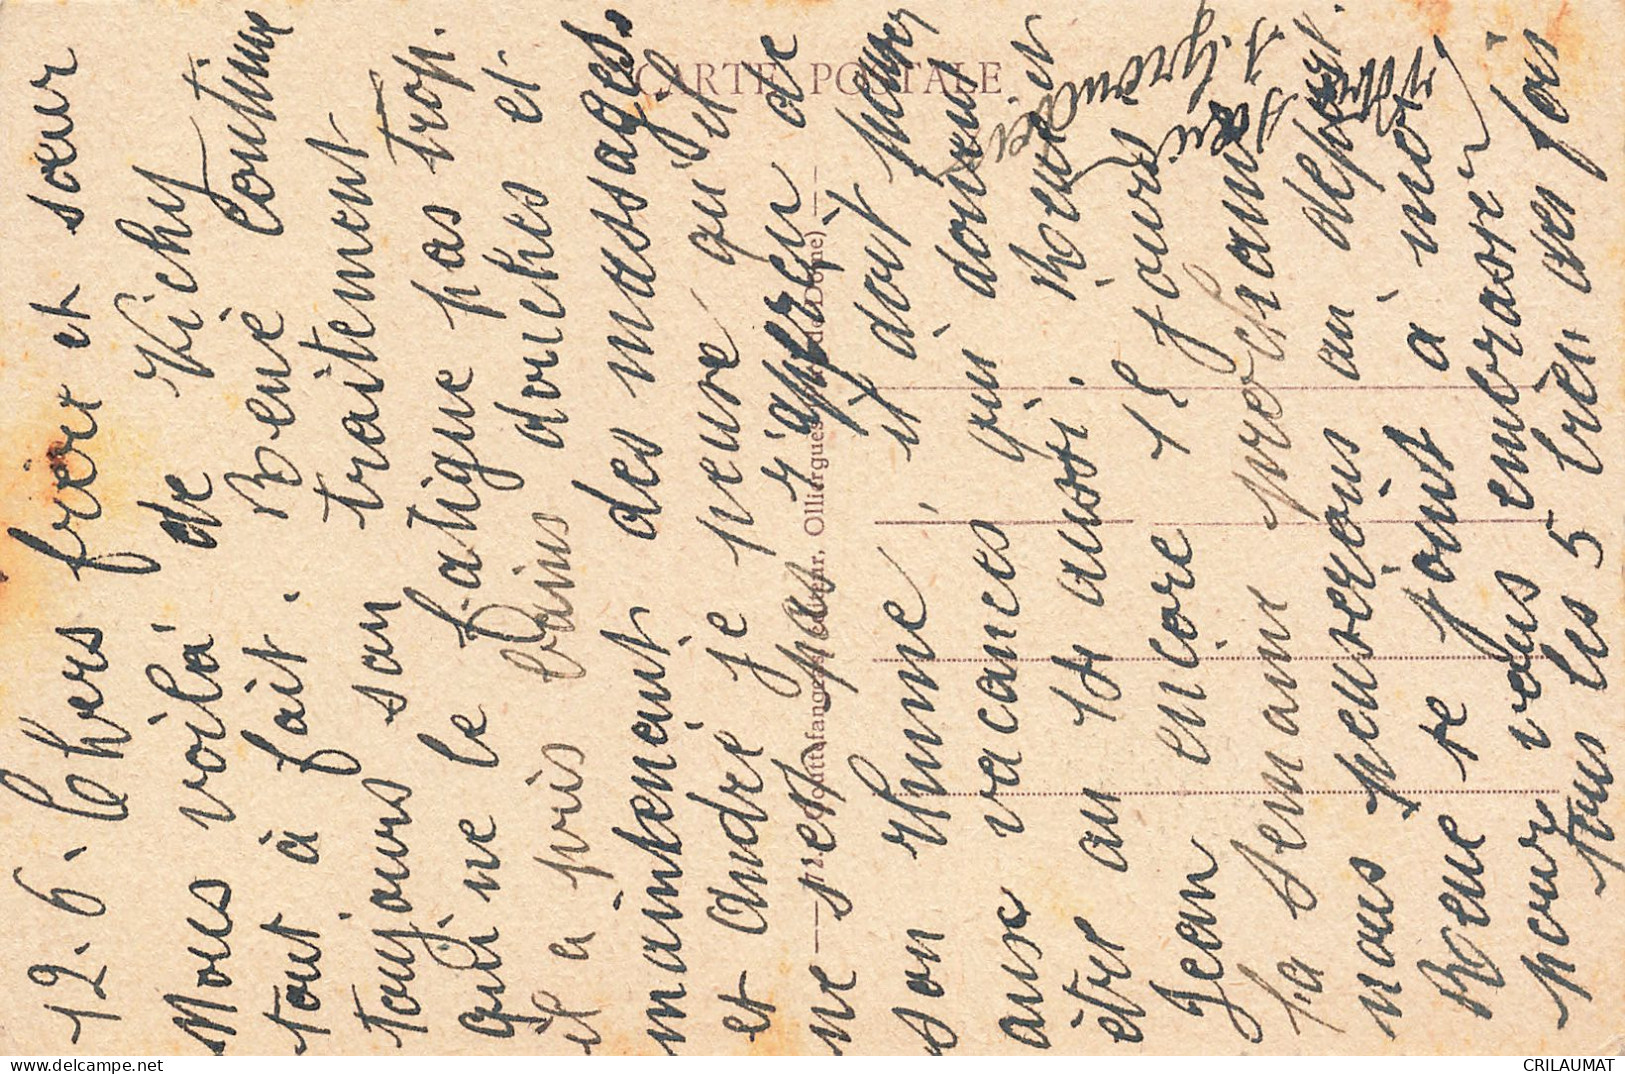 12.6. Chers frère et sœur
Nous voilà de Vichy
tout à fait. René continue
toujours son traitement
qui ne le fatigue pas trop.
il a pris bains douches et
maintenant des massages.
et André je pense qu'il
ne s'est pas aperçu de
son rhume, il doit penser
aux vacances qui doivent
être au 14 aussi. René et
Jean encore 15 jours
la semaine prochaine
nous penserons au départ.
René se joint à moi
pour vous embrasser
tous les 5 bien des fois
CARTE POSTALE
Olliergues
CRILAUMAT